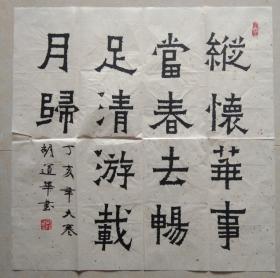 縱懷華事
當春去暢
足清游載
月歸
丁亥年大寒
胡道華書